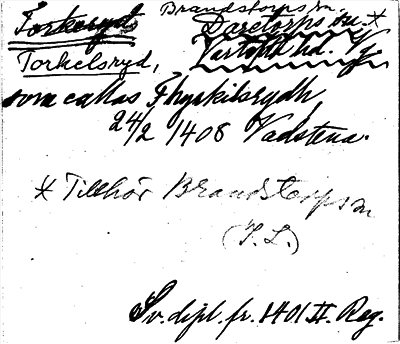 Torkeryds Brandstorps sn.
Daretorps sn. *
Torkelsryd, Vartofta hd. Vg.
som callas Thyrkilsrydh
24/2 1408 Vadstena.
* Tillhör Brandstorps sn
(I. L.)
Sv. dipl. fr. 1401 II. Reg.